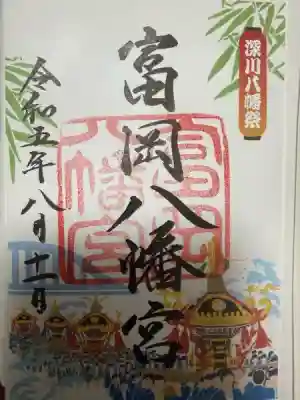 深川八幡祭
富岡八幡宮
富岡八幡宮
令和五年八月十一日